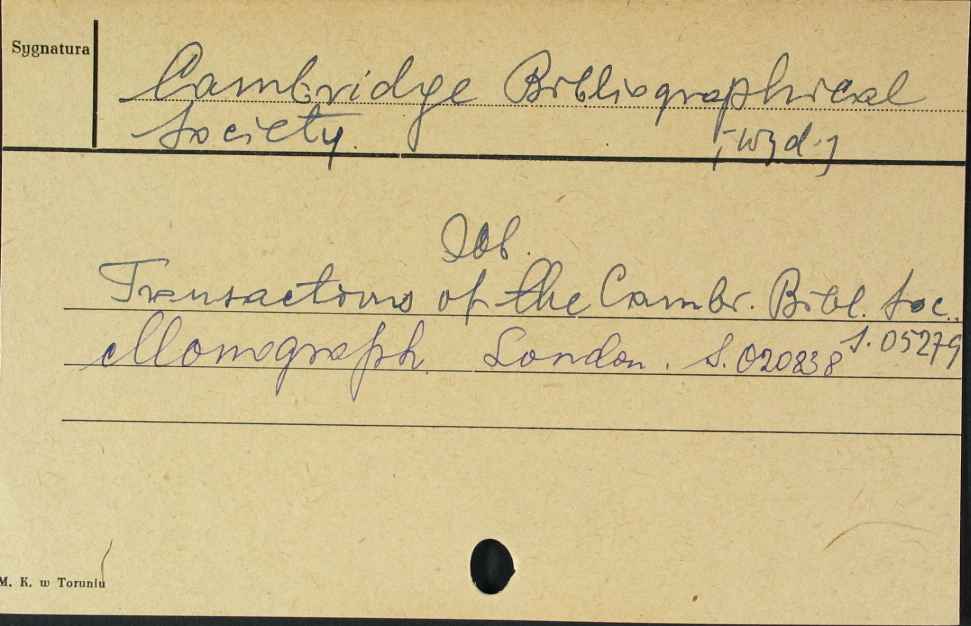 Sygnatura
Cambridge Bibliographical
Society.
[wyd.]
Zob.
Transactions of the Cambr. Bibl. Soc.
S. 05279
Monograph. London. S. 020838
M. K. w Toruniu